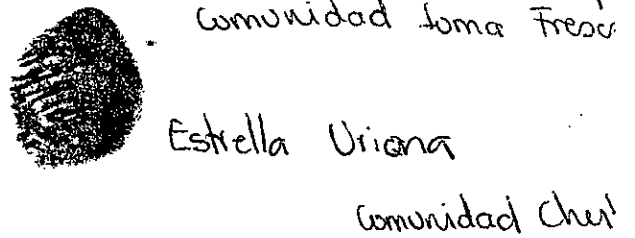 Comunidad Loma Fresc
Estrella Uriana
Comunidad